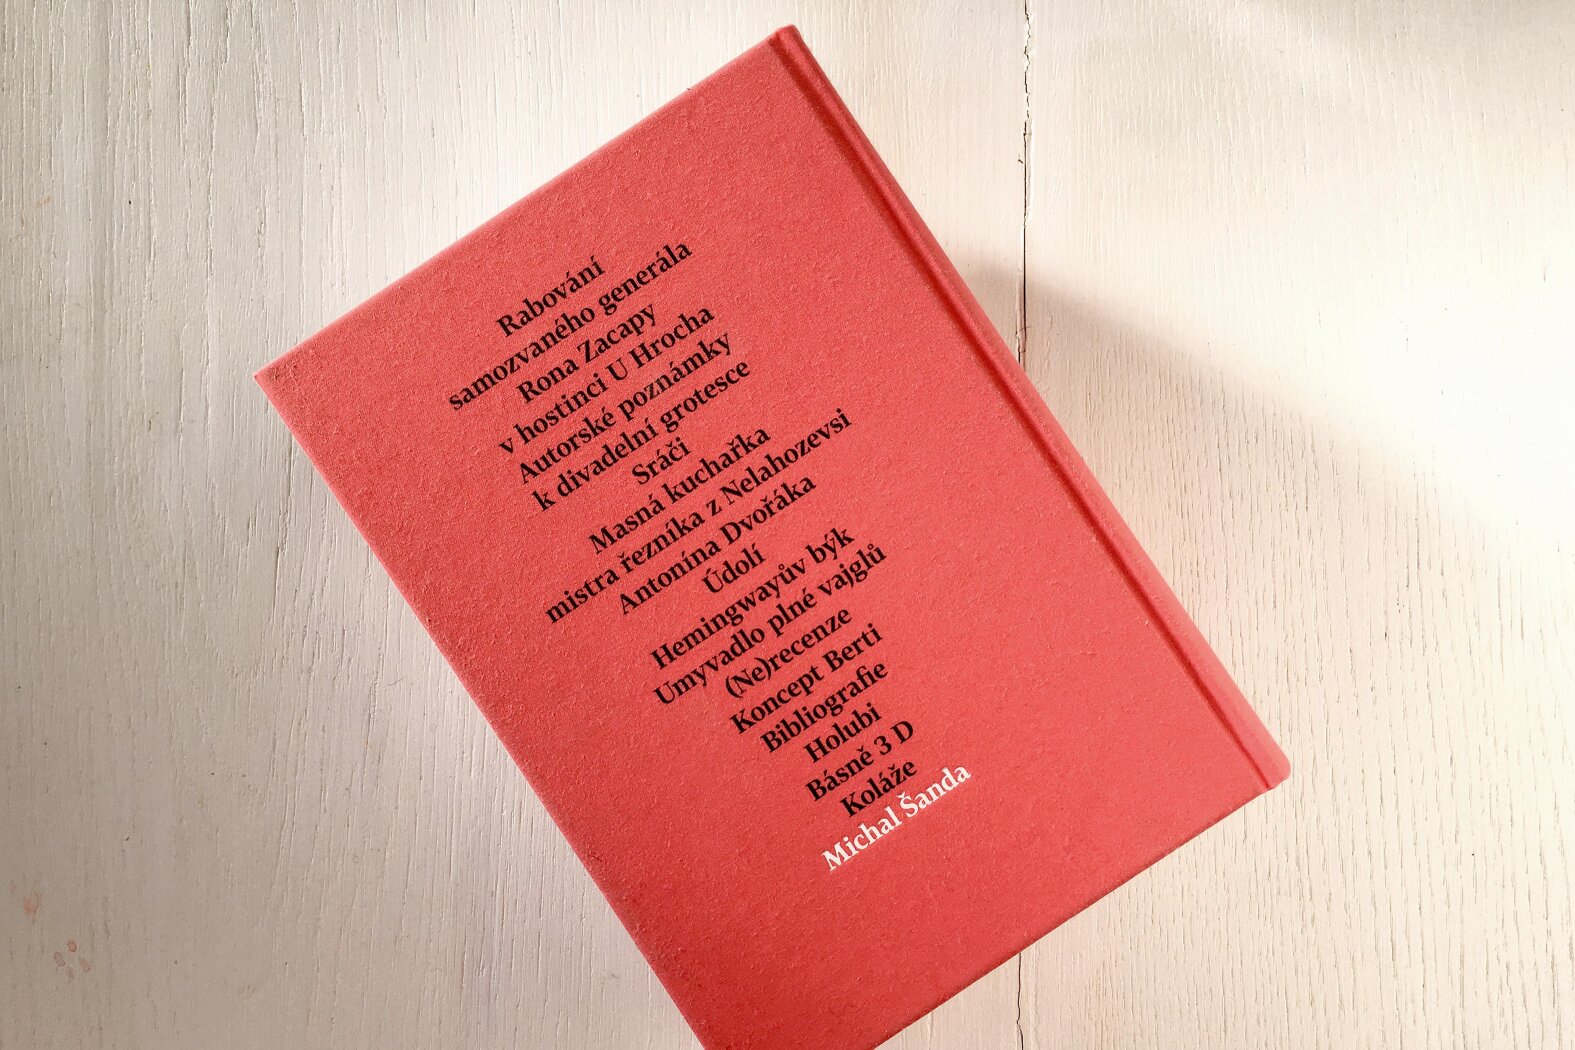 Rabování
samozvaného generála
Rona Zacapy
v hostinci U Hrocha
Autorské poznámky
k divadelní grotesce
Sráči
Masná kuchařka
mistra řezníka z Nelahozevsi
Antonína Dvořáka
Údolí
Hemingwayův býk
Umyvadlo plné vajglů
(Ne)recenze
Koncept Berti
Bibliografie
Holubi
Básně 3 D
Koláže
Michal Šanda